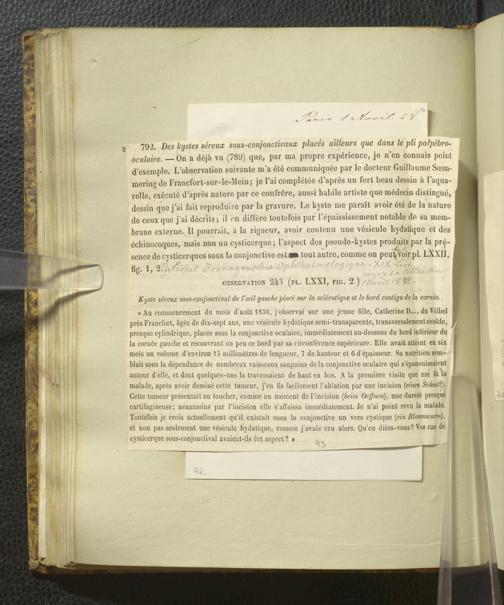 Paris 1 Avril 58
792. Des kystes séreux sous-conjonctivaux placés ailleurs que dans le pli palpébro-
oculaire. — On a déjà vu (789) que, par ma propre expérience, je n'en connais point
d'exemple. L'observation suivante m'a été communiquée par le docteur Guillaume Sœm-
mering de Francfort-sur-le-Mein; je l'ai complétée d'après un fort beau dessin à l'aqua-
relle, exécuté d'après nature par ce confrère, aussi habile artiste que médecin distingué,
dessin que j'ai fait reproduire par la gravure. Le kyste me paraît avoir été de la nature
de ceux que j'ai décrits; il en diffère toutefois par l'épaississement notable de sa mem-
brane externe. Il pourrait, à la rigueur, avoir contenu une vésicule hydatique et des
échinocoques, mais non un cysticerque; l'aspect des pseudo-kystes produits par la pré-
sence de cysticerques sous la conjonctive est tout autre, comme on peut voir pl. LXXII,
fig. 1, 2. Iconographie Ophthalmologique. XIX Liv.
OBSERVATION 243 (PL. LXXI, FIG. 2.) 1858.
Kyste séreux sous-conjonctival de l'œil gauche placé sur la sclérotique et le bord contigu de la cornée.
« Au commencement du mois d'août 1830, j'observai sur une jeune fille, Catherine D.., de Vilbel
près Francfort, âgée de dix-sept ans, une vésicule hydatique semi-transparente, transversalement ovoïde,
presque cylindrique, placée sous la conjonctive oculaire, immédiatement au-dessous du bord inférieur de
la cornée gauche et recouvrant un peu ce bord par sa circonférence supérieure. Elle avait atteint en six
mois un volume d'environ 15 millimètres de longueur, 7 de hauteur et 6 d'épaisseur. Sa nutrition sem-
blait sous la dépendance de nombreux vaisseaux sanguins de la conjonctive oculaire qui s'épanouissaient
autour d'elle, et dont quelques-uns la traversaient de haut en bas. A la première visite que me fit la
malade, après avoir dessiné cette tumeur, j'en fis facilement l'ablation par une incision (einen Schnitt).
Cette tumeur présentait au toucher, comme au moment de l'incision (beim Oeffnen), une dureté presque
cartilagineuse; néanmoins par l'incision elle s'affaissa immédiatement. Je n'ai point revu la malade.
Toutefois je crois actuellement qu'il existait sous la conjonctive un vers cystique (ein Blasenwurm),
et non pas seulement une vésicule hydatique, comme j'avais cru alors. Qu'en dites-vous? Vos cas de
cysticerque sous-conjonctival avaient-ils cet aspect? »
43
42